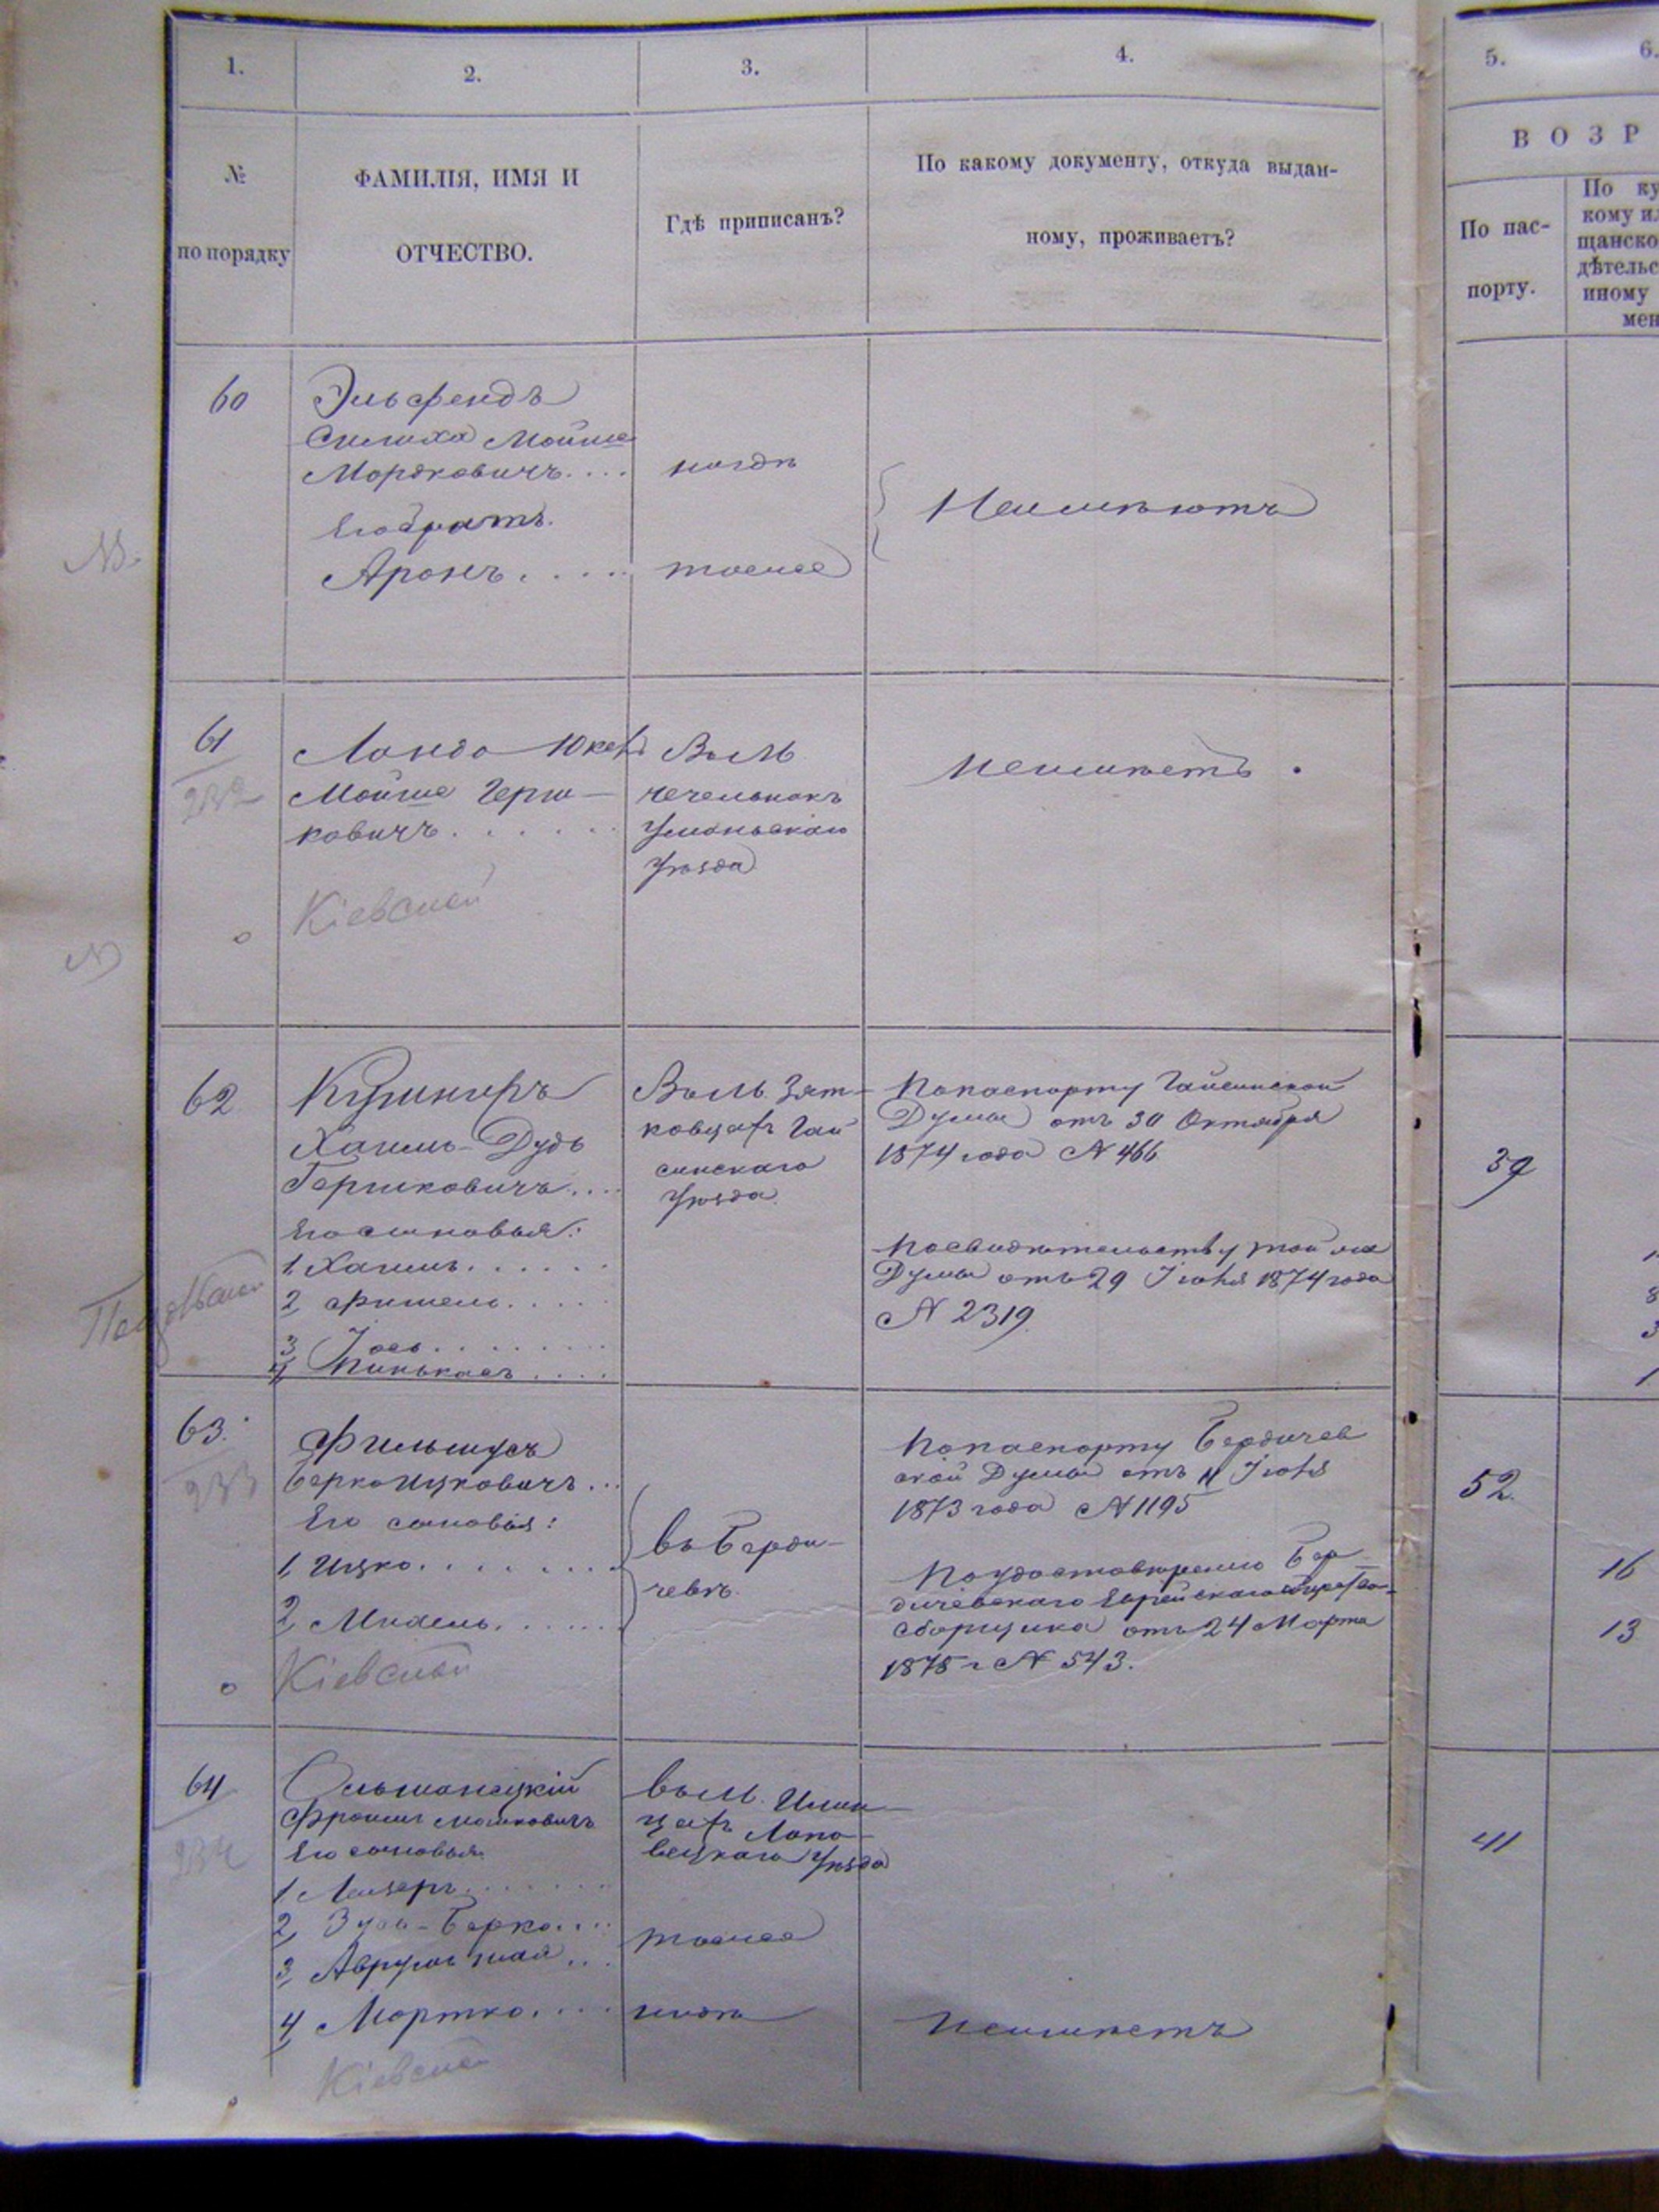 1.
2.
3.
4.
5.
6.
№
по порядку
ФАМИЛІЯ, ИМЯ И
ОТЧЕСТВО.
Гдѣ приписанъ?
По какому документу, откуда выдан-
ному, проживаетъ?
ВОЗР
По пас-
порту.
По ку
кому ил
щанско
дѣтельс
иному
мен
60
Эльфендъ
Мойше
Мордковичъ....
Его братъ.
Аронъ.....
тоже
Неимѣютъ
61
232
Ландо
Мойше Герш-
ковичъ......
Кіевской
Въ м.
Чечельникъ
Уманьскаго
Уѣзда
Неимѣетъ.
62
Кушниръ
Хаимъ-Дудь
Гершковичъ....
Его сыновья:
1, Хаимъ......
2, Фишель.....
3, Іось........
4, Пинькасъ....
Подольской
Въ м. Зят-
ковцахъ Гай
синскаго
Уѣзда.
По паспорту Гайсинской
Думы отъ 30 Октября
1874 года № 466
По свидѣтельству той же
Думы отъ 29 Іюня 1874 года
№ 2319.
39
63.
233
Фильшусъ
Берко Ицковичъ...
Его сыновья:
1, Ицко........
2, Михель.......
Кіевской
въ Берди-
чевѣ.
По паспорту Бердичев
ской Думы отъ 11 Іюня
1873 года № 1195
По удостовѣренію Бер
дичевскаго Еврейскаго
сборщика отъ 24 Марта
1875 г № 543.
52.
16
13
64
234
Ольшанецкій
Фроимъ Мошковичъ
Его сыновья
1, Лейзеръ.......
2, Зусь-Берко....
3, Аврумъ
4, Мортко....
Кіевской
въ м. Илин
цахъ Липо-
вецкаго Уѣзда
тоже
Неимѣетъ
41